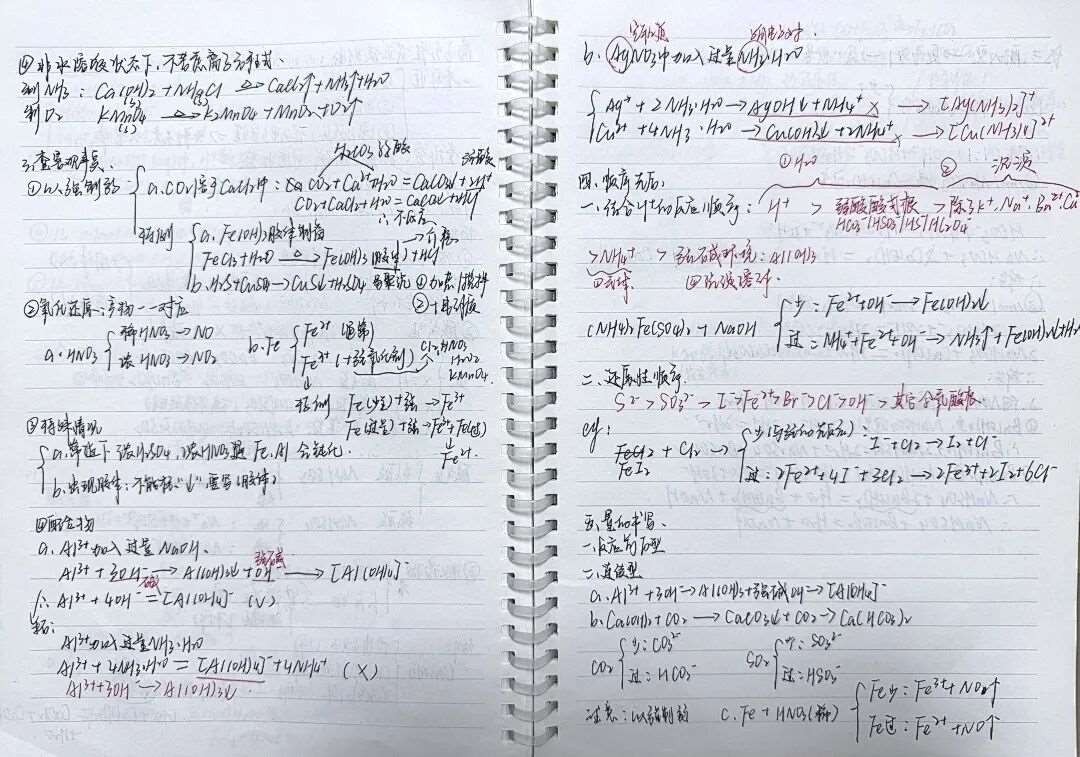 ④非水溶液状态下,不考虑离子方程式.
制NH₃: Ca(OH)₂ + NH₄Cl →△ CaCl₂ + NH₃↑ + H₂O
(s) (s)
制O₂ KMnO₄ →△ K₂MnO₄ + MnO₂ + O₂↑
(s)
三.查客观事实.
H₂CO₃弱酸 强酸
①以强制弱
a.CO₂通于CaCl₂中: CO₂ + Ca²⁺ + H₂O = CaCO₃↓ + 2H⁺
CO₂ + CaCl₂ + H₂O = CaCO₃↓ + HCl
∴不反应
特例
a. Fe(OH)₃胶体制备
FeCl₃ + H₂O →△ Fe(OH)₃(胶体) + HCl
b. H₂S + CuSO₄ → CuS↓ + H₂SO₄ 易聚沉 ①加热/搅拌
②氧化还原:产物一一对应
a. HNO₃
稀HNO₃ → NO
浓HNO₃ → NO₂
b. Fe
Fe²⁺ (通常)
Fe³⁺ (+强氧化剂)
Cl₂、HNO₃
H₂O₂
KMnO₄.
特例 Fe(少量) + 强 → Fe³⁺
Fe(过量) + 强 → Fe³⁺ + Fe(过)
Fe²⁺.
③特殊情况
a.常温下 浓H₂SO₄、浓HNO₃遇Fe、Al会钝化.
b.出现胶体:不能标"↓"要写(胶体)
④配合物
a. Al³⁺加入过量NaOH.
强碱
Al³⁺ + 3OH⁻ → Al(OH)₃↓ + OH⁻ → [Al(OH)₄]⁻
∴ Al³⁺ + 4OH⁻ = [Al(OH)₄]⁻ (√)
Al³⁺加入过量NH₃·H₂O
Al³⁺ + 4NH₃·H₂O = [Al(OH)₄]⁻ + 4NH₄⁺ (X)
Al³⁺ + 3OH⁻ → Al(OH)₃↓.
b. AgNO₃中加入过量NH₃·H₂O
Ag⁺ + 2NH₃·H₂O → AgOH↓ + NH₄⁺ X → [Ag(NH₃)₂]⁺
Cu²⁺ + 4NH₃·H₂O → Cu(OH)₂↓ + 2NH₄⁺ X → [Cu(NH₃)₄]²⁺
①H₂O ② 沉淀
四、顺序先后:
一.结合H⁺的反应顺序: H⁺ > 弱酸酸式根 > 除了K⁺、Na⁺、Ba²⁺、Ca²⁺
HCO₃⁻/HSO₃⁻/HS⁻/HC₂O₄⁻
> NH₄⁺ > 强碱环境: Al(OH)₃
(NH₄)₂Fe(SO₄)₂ + NaOH
少: Fe²⁺ + OH⁻ → Fe(OH)₂↓
过: NH₄⁺ + Fe²⁺ + OH⁻ → NH₃↑ + Fe(OH)₂↓ + H₂O
二、还原性顺序
S²⁻ > SO₃²⁻ > I⁻ > Fe²⁺ > Br⁻ > Cl⁻ > OH⁻ > 其它含氧酸根
eg:
FeCl₂ + Cl₂
FeI₂
少(与强的先反应): I⁻ + Cl₂ → I₂ + Cl⁻
过: 2Fe²⁺ + 4I⁻ + 3Cl₂ → 2Fe³⁺ + 2I₂ + 6Cl⁻
五、量的书写.
一、反应前后型
二、连续型
a. Al³⁺ + 3OH⁻ → Al(OH)₃ + 强碱OH⁻ → [Al(OH)₄]⁻
b. Ca(OH)₂ + CO₂ → CaCO₃↓ + CO₂ → Ca(HCO₃)₂
CO₂
少: CO₃²⁻
过: HCO₃⁻
SO₂
少: SO₃²⁻
过: HSO₃⁻
注意: 以强制弱 c. Fe + HNO₃(稀)
Fe少: Fe³⁺ + NO↑
Fe过: Fe²⁺ + NO↑